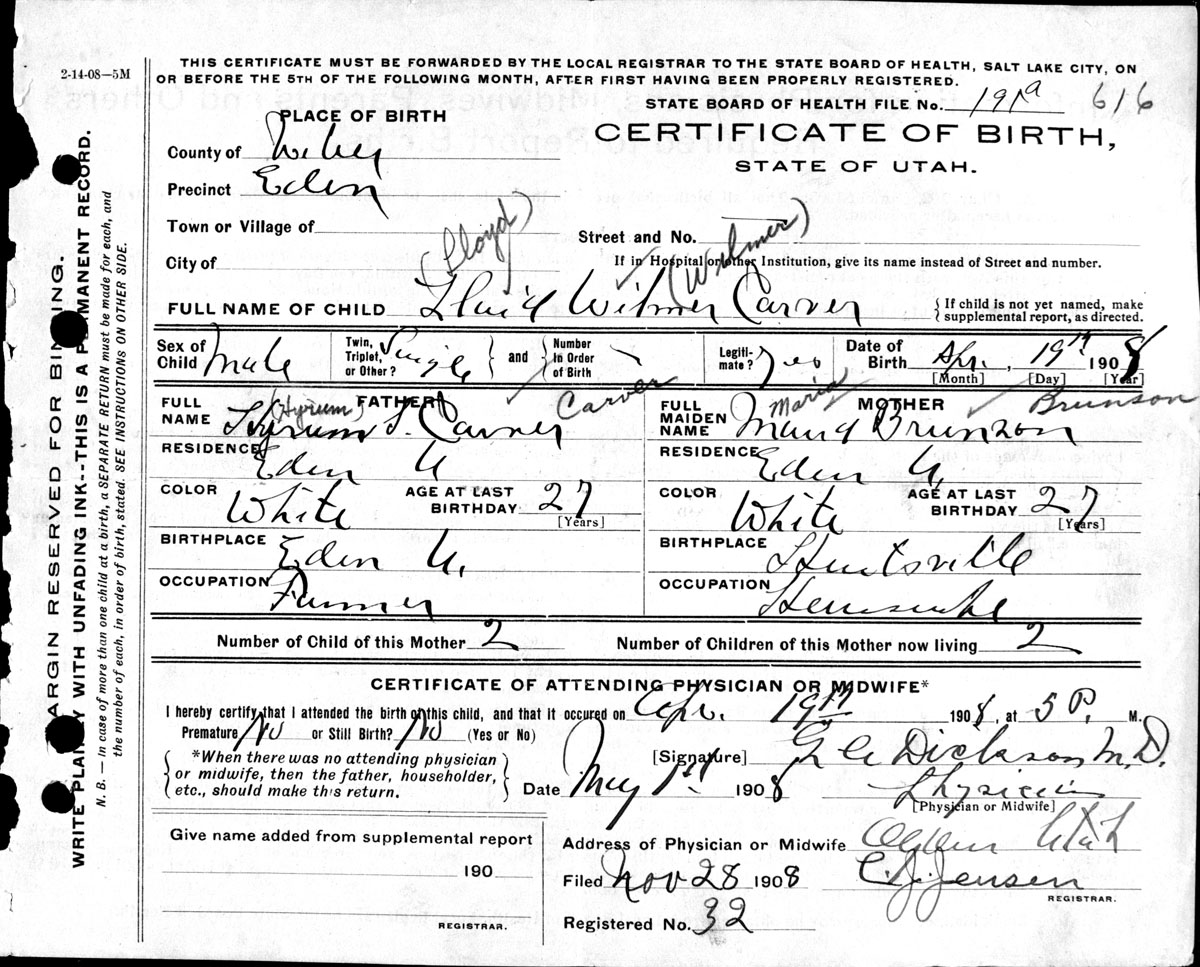 2-14-08—5M
THIS CERTIFICATE MUST BE FORWARDED BY THE LOCAL REGISTRAR TO THE STATE BOARD OF HEALTH, SALT LAKE CITY, ON
OR BEFORE THE 5TH OF THE FOLLOWING MONTH, AFTER FIRST HAVING BEEN PROPERLY REGISTERED.
STATE BOARD OF HEALTH FILE No. 191a 616
PLACE OF BIRTH
CERTIFICATE OF BIRTH,
STATE OF UTAH.
County of Weber
Precinct Eden
Town or Village of
Street and No.
City of
If in Hospital or other Institution, give its name instead of Street and number.
(Lloyd) (Wilmer)
FULL NAME OF CHILD Wilmer Carver
{ If child is not yet named, make
supplemental report, as directed.
Sex of Child Male Twin, Triplet, or Other? Single } and { Number in Order of Birth Legitimate? Yes Date of Birth Apr. 19th 1908
[Month] [Day] [Year]
FATHER
FULL NAME (Hyrum) Carver
Hyrum S. Carver
RESIDENCE Eden U
COLOR White AGE AT LAST BIRTHDAY 27
[Years]
BIRTHPLACE Eden U.
OCCUPATION Farmer
MOTHER
FULL MAIDEN NAME Maria Brunson
Maud Brunson
RESIDENCE Eden U.
COLOR White AGE AT LAST BIRTHDAY 27
[Years]
BIRTHPLACE Huntsville
OCCUPATION
Number of Child of this Mother 2 Number of Children of this Mother now living 2
CERTIFICATE OF ATTENDING PHYSICIAN OR MIDWIFE*
I hereby certify that I attended the birth of this child, and that it occured on Apr. 19th 1908, at 5 P. M.
Premature No or Still Birth? No (Yes or No)
[Signature] Dickson M.D.
{ *When there was no attending physician
or midwife, then the father, householder,
etc., should make this return. }
Date May 1st 1908 Physician
[Physician or Midwife]
Give name added from supplemental report
190
REGISTRAR.
Address of Physician or Midwife Ogden Utah
Filed Nov 28 1908 C. J. Jensen
REGISTRAR.
Registered No. 32
MARGIN RESERVED FOR BINDING.
WRITE PLAINLY WITH UNFADING INK--THIS IS A PERMANENT RECORD.
N. B. — In case of more than one child at a birth, a SEPARATE RETURN must be made for each, and
the number of each, in order of birth, stated. SEE INSTRUCTIONS ON OTHER SIDE.